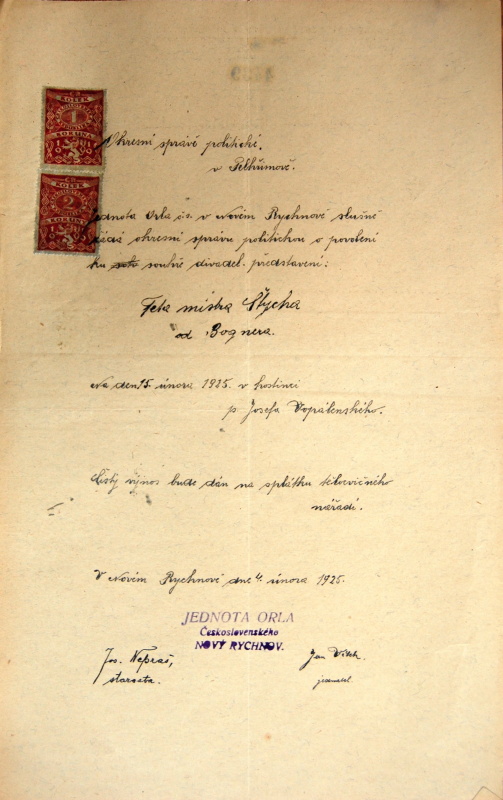 KOLEK
1
KORUNA
KOLEK
2
KORUNY
Okresní správě politické.
v Pelhřimově.
Jednota Orla čs. v Novém Rychnově slušně
žádá okresní správu politickou o povolení
ku souhře divadel. představení:
Teta mistra Štycha
od Bognera.
Na den 15. února 1925. v hostinci
p. Josefa Vopálenského.
Čistý výnos bude dán na splátku tělocvičného
nářadí.
V Novém Rychnově dne 4. února 1925.
JEDNOTA ORLA
Československého
NOVÝ RYCHNOV.
Jos. Nepraš,
starosta.
Jan
jednatel.